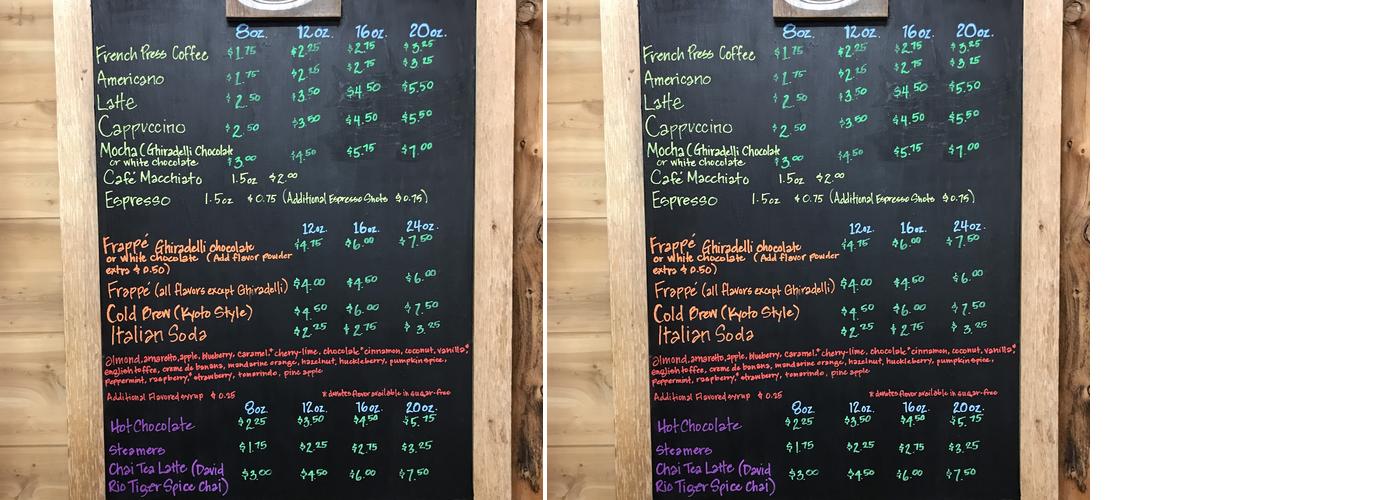 8oz. 12oz. 16oz. 20oz.
French Press Coffee $1.75 $2.25 $2.75 $3.25
Americano $1.75 $2.25 $2.75 $3.25
Latte $2.50 $3.50 $4.50 $5.50
Cappuccino $2.50 $3.50 $4.50 $5.50
Mocha (Ghiradelli Chocolate
or white chocolate $3.00 $4.50 $5.75 $7.00
Café Macchiato 1.5oz $2.00
Espresso 1.5oz $0.75 (Additional Espresso Shots $0.75)
12oz. 16oz. 24oz.
Frappé Ghiradelli chocolate $4.75 $6.00 $7.50
or white chocolate (Add flavor powder
extra $0.50)
Frappé (all flavors except Ghiradelli) $4.00 $4.50 $6.00
Cold Brew (Kyoto Style) $4.50 $6.00 $7.50
Italian Soda $2.25 $2.75 $3.25
almond, amaretto, apple, blueberry, caramel,* cherry-lime, chocolate* cinnamon, coconut, vanilla,*
english toffee, creme de banana, mandarine orange, hazelnut, huckleberry, pumpkin spice,
peppermint, raspberry,* strawberry, tamarindo, pineapple
Additional Flavored syrup $0.25 * denotes flavor available in sugar-free
8oz. 12oz. 16oz. 20oz.
Hot Chocolate $2.25 $3.50 $4.50 $5.75
Steamers $1.75 $2.25 $2.75 $3.25
Chai Tea Latte (David $3.00 $4.50 $6.00 $7.50
Rio Tiger Spice Chai)
8oz. 12oz. 16oz. 20oz.
French Press Coffee $1.75 $2.25 $2.75 $3.25
Americano $1.75 $2.25 $2.75 $3.25
Latte $2.50 $3.50 $4.50 $5.50
Cappuccino $2.50 $3.50 $4.50 $5.50
Mocha (Ghiradelli Chocolate
or white chocolate $3.00 $4.50 $5.75 $7.00
Café Macchiato 1.5oz $2.00
Espresso 1.5oz $0.75 (Additional Espresso Shots $0.75)
12oz. 16oz. 24oz.
Frappé Ghiradelli chocolate $4.75 $6.00 $7.50
or white chocolate (Add flavor powder
extra $0.50)
Frappé (all flavors except Ghiradelli) $4.00 $4.50 $6.00
Cold Brew (Kyoto Style) $4.50 $6.00 $7.50
Italian Soda $2.25 $2.75 $3.25
almond, amaretto, apple, blueberry, caramel,* cherry-lime, chocolate* cinnamon, coconut, vanilla,*
english toffee, creme de banana, mandarine orange, hazelnut, huckleberry, pumpkin spice,
peppermint, raspberry,* strawberry, tamarindo, pineapple
Additional Flavored syrup $0.25 * denotes flavor available in sugar-free
8oz. 12oz. 16oz. 20oz.
Hot Chocolate $2.25 $3.50 $4.50 $5.75
Steamers $1.75 $2.25 $2.75 $3.25
Chai Tea Latte (David $3.00 $4.50 $6.00 $7.50
Rio Tiger Spice Chai)